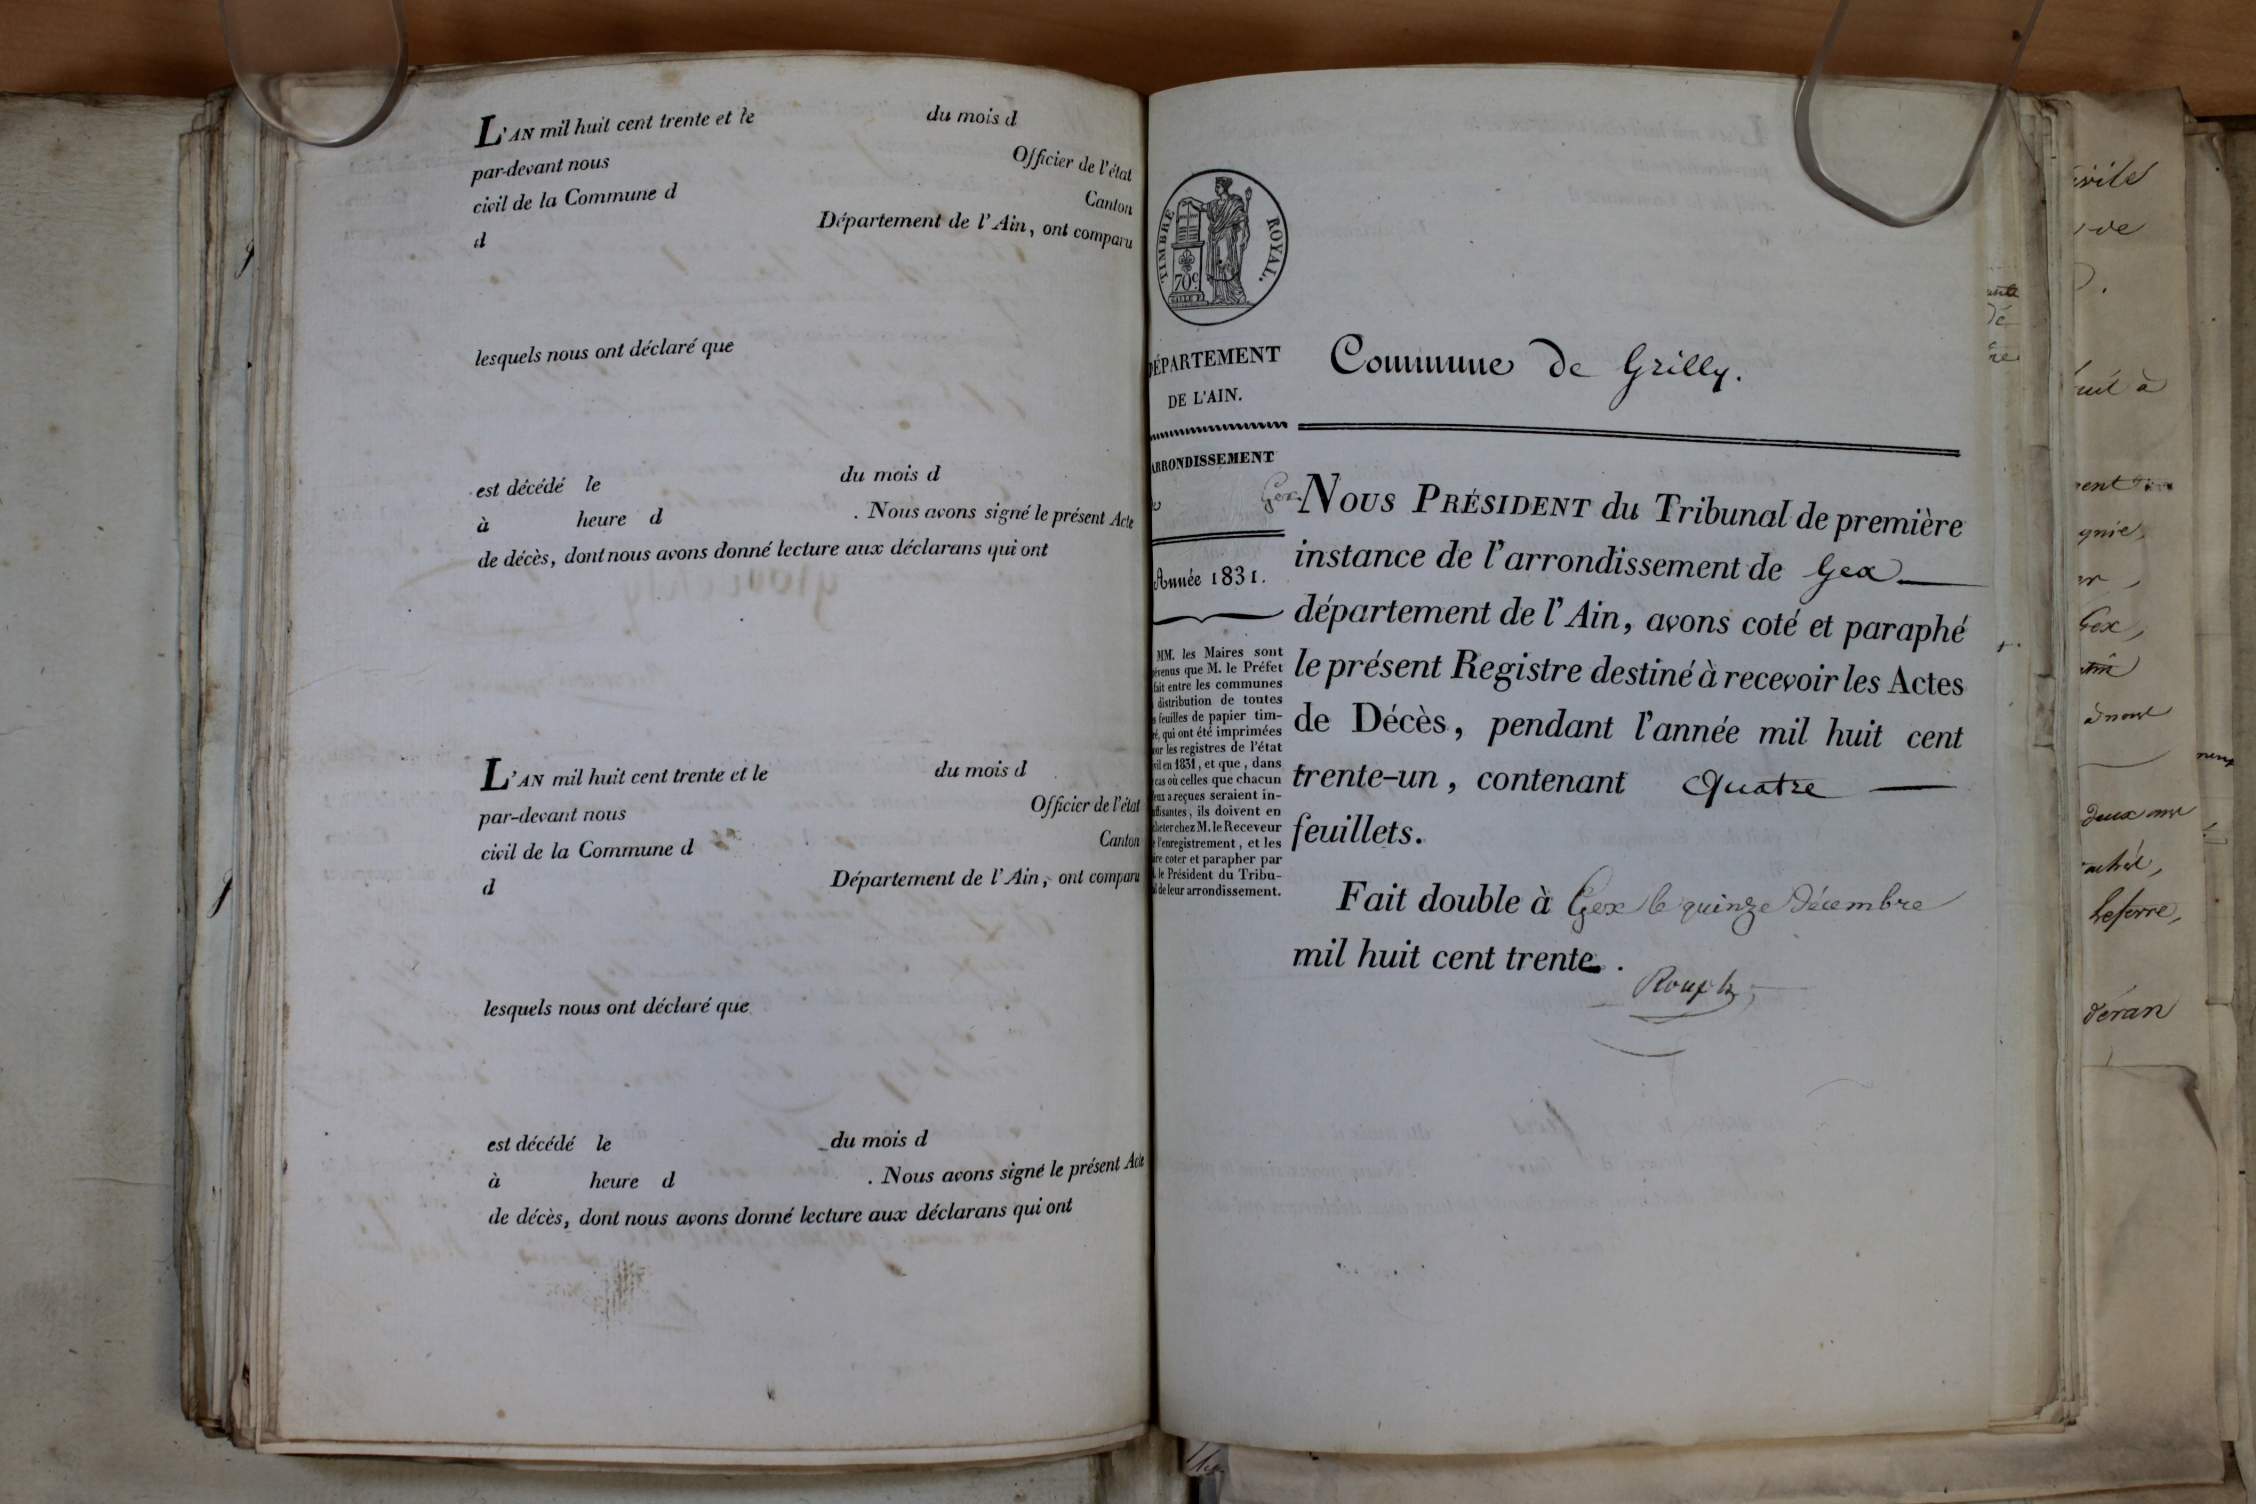 L'AN mil huit cent trente et le du mois d
par-devant nous Officier de l'état
civil de la Commune d Canton
d Département de l'Ain, ont comparu
lesquels nous ont déclaré que
est décédé le du mois d
à heure d . Nous avons signé le présent Acte
de décès, dont nous avons donné lecture aux déclarans qui ont
L'AN mil huit cent trente et le du mois d
par-devant nous Officier de l'état
civil de la Commune d Canton
d Département de l'Ain, ont comparu
lesquels nous ont déclaré que
est décédé le du mois d
à heure d . Nous avons signé le présent Acte
de décès, dont nous avons donné lecture aux déclarans qui ont
TIMBRE ROYAL.
70c
DÉPARTEMENT
DE L'AIN.
ARRONDISSEMENT
Gex.
Année 1831.
MM. les Maires sont
que M. le Préfet
fait entre les communes
distribution de toutes
feuilles de papier tim-
qui ont été imprimées
les registres de l'état
en 1831, et que, dans
cas où celles que chacun
a reçues seraient in-
ils doivent en
chez M. le Receveur
l'enregistrement, et les
coter et parapher par
le Président du Tribu-
de leur arrondissement.
Commune de Grilly.
NOUS PRÉSIDENT du Tribunal de première
instance de l'arrondissement de Gex
département de l'Ain, avons coté et paraphé
le présent Registre destiné à recevoir les Actes
de Décès, pendant l'année mil huit cent
trente-un, contenant Quatre
feuillets.
Fait double à Gex le quinze décembre
mil huit cent trente.
Rouph
de
à
Gex,
deux